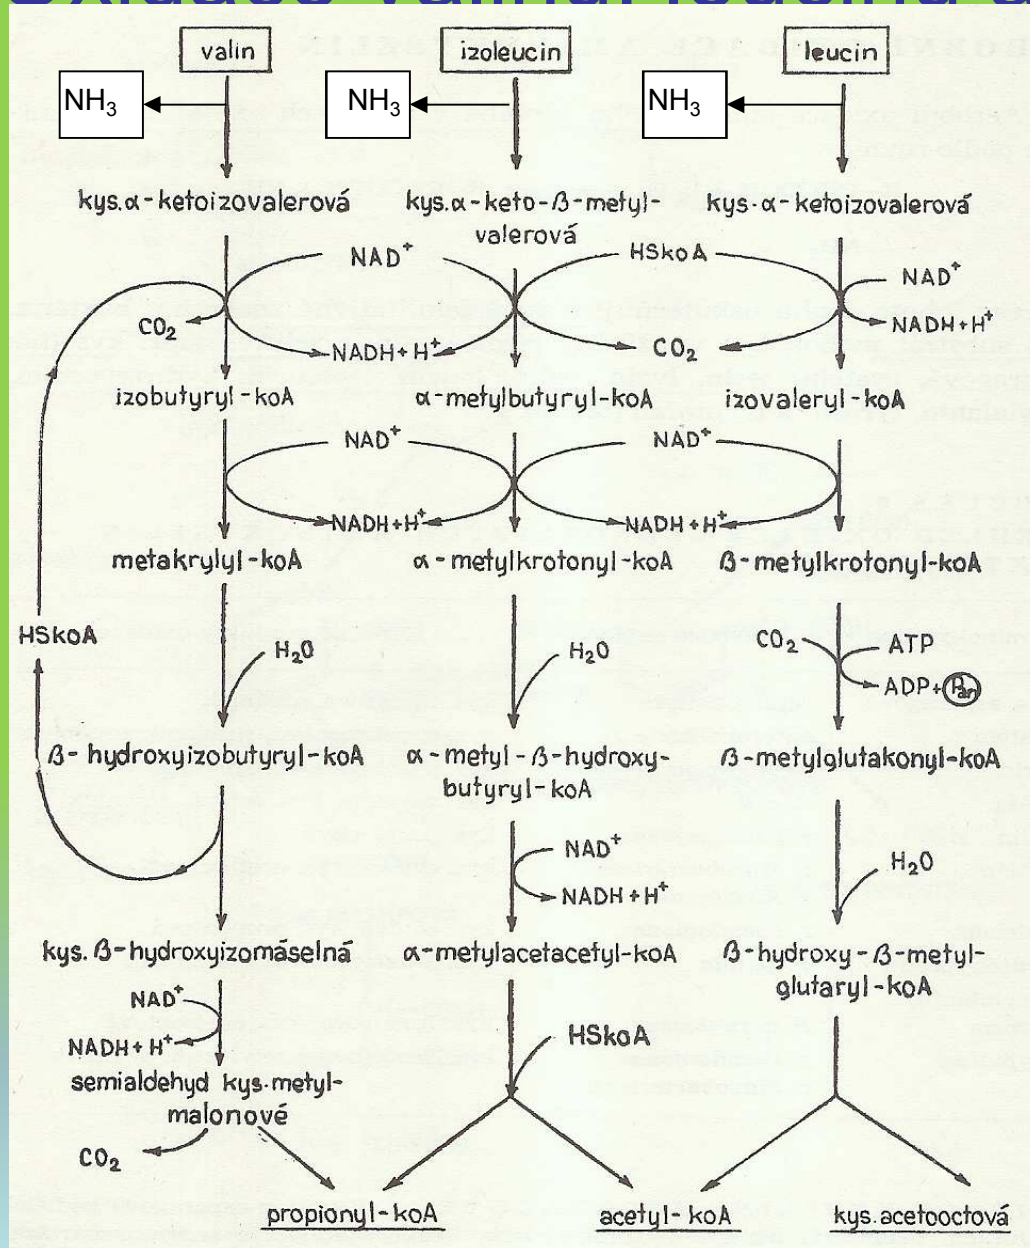 valin
izoleucin
leucin
NH3
NH3
NH3
kys.α-ketoizovalerová
kys.α-keto-ß-metyl-
valerová
kys.α-ketoizovalerová
NAD+
HSkoA
NAD+
CO2
NADH+H+
CO2
NADH+H+
izobutyryl-koA
α-metylbutyryl-koA
izovaleryl-koA
NAD+
NAD+
NADH+H+
NADH+H+
metakrylyl-koA
α-metylkrotonyl-koA
ß-metylkrotonyl-koA
HSkoA
H2O
H2O
CO2
ATP
ADP+Pan
ß-hydroxyizobutyryl-koA
α-metyl-ß-hydroxy-
butyryl-koA
ß-metylglutakonyl-koA
NAD+
NADH+H+
H2O
kys.ß-hydroxyizomáselná
α-metylacetacetyl-koA
ß-hydroxy-ß-metyl-
glutaryl-koA
NAD+
NADH+H+
HSkoA
semialdehyd kys.metyl-
malonové
CO2
propionyl-koA
acetyl-koA
kys.acetooctová